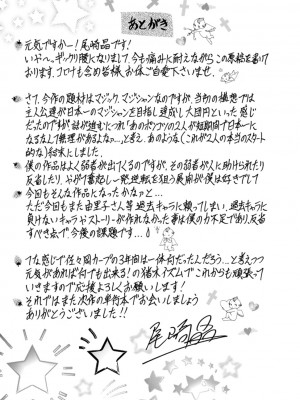 あとがき
元気ですかー！尾崎晶です！
いや〜、ギックリ腰になりまして、今も痛みに耐えながらこの原稿を書いて
おります。うけけも含め皆様、お体ご自愛下さいませ。
さて、今作の題材はマジック、マジシャンなのですが、当初の構想では
主人公達が日本一のマジシャンを目指し達成し大団円といった感じ
だったのですが、話が進むにつれ「あのポンコツの2人が短期間で日本一に
なるなんて無理があるよな…」と考え、あのような（これが2人の本当のスタート
的な）結末としました。
僕の作品にはよく弱者が出てくるのですが、その弱者が人に助けられたり
反省したり、いざ奮起し一発逆転を狙う展開が僕は好きでして
今回もそんな作品になったかなっと…
ただ今回もまた由里子さん等過去キャラに頼ってしまい、過去キャラに
負けないキャラやストーリーが作れなかった事は僕の力不足であり、反省
すべき点で今後の課題です…
てな感じで佐々岡カープの3年間は一体何だったんだろう…と考えつつ
元気があれば何でも出来る！の猪木イズムでこれからも頑張って
いきますので応援よろしくお願いします！
それではまた次作の単行本でお会いしましょう
ありがとうございました！！
尾崎晶